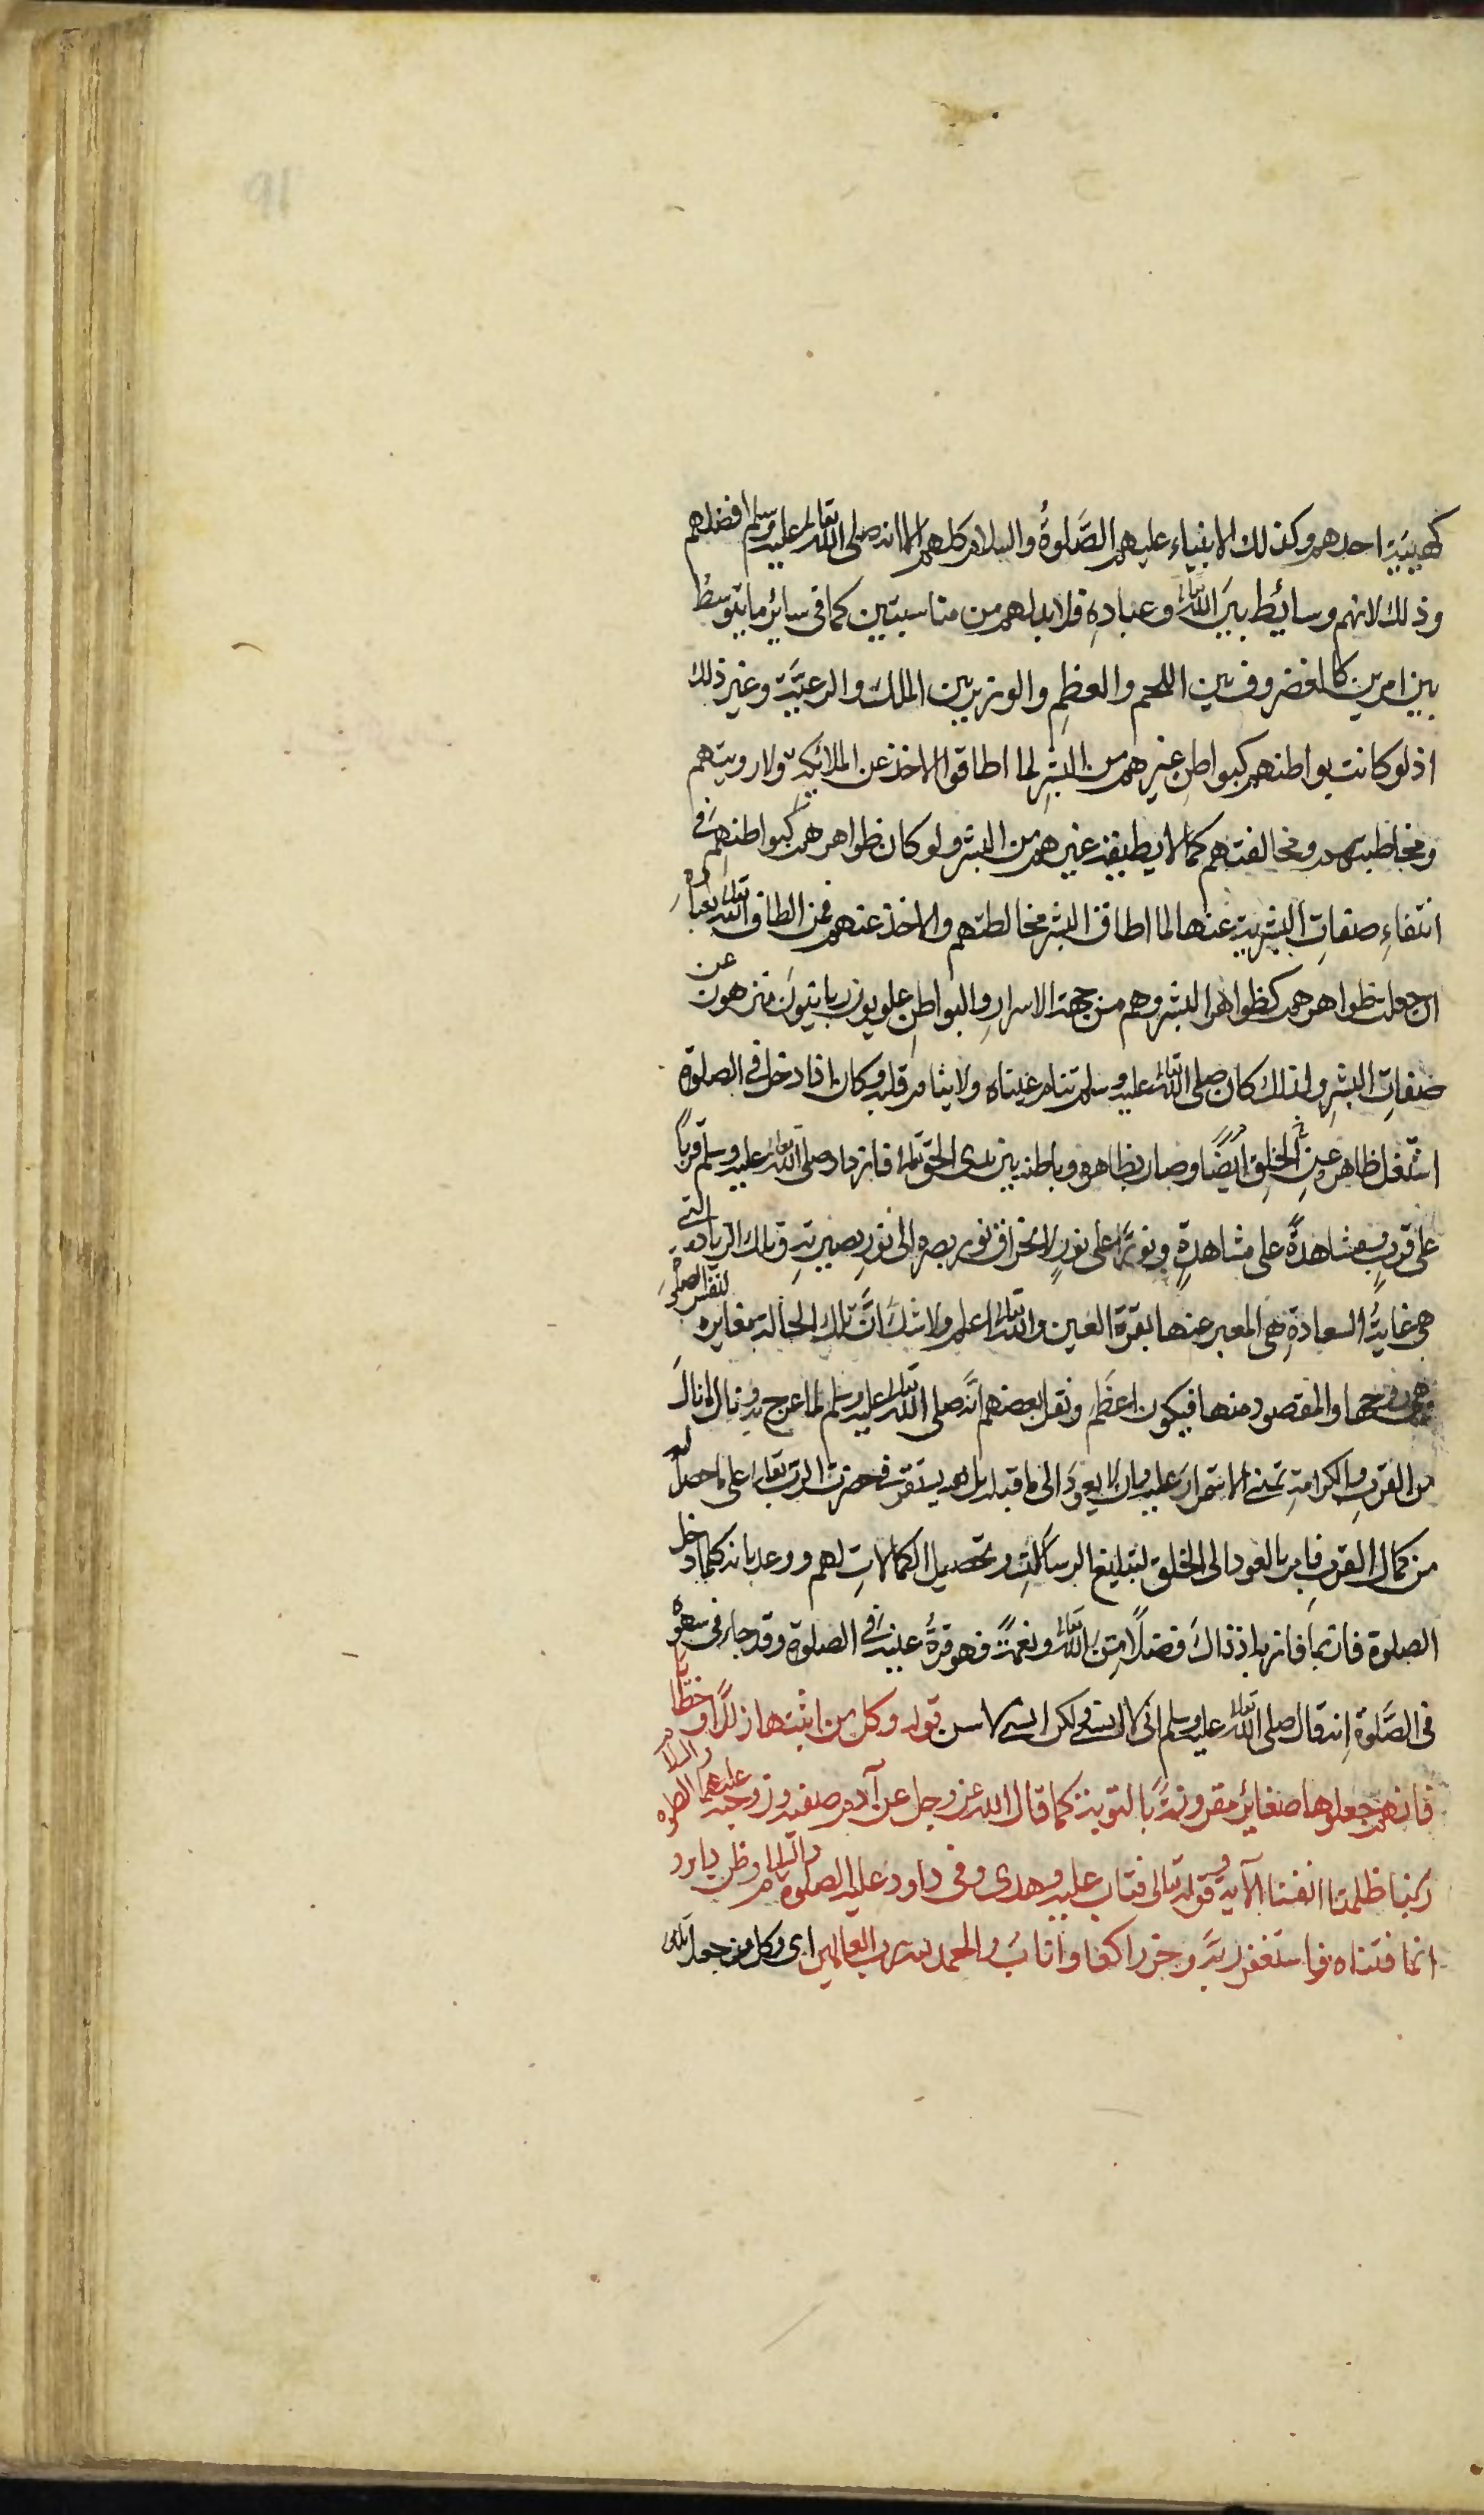 كهيبة احدهم وكذلك الانبياء عليهم الصَّلوةُ والسلام كلهم الا انه صلى الله تعالى عليه وسلم افضلهم
وذلك لانهم وسائط بينَ الله تعالى وعبادِه فلا بد لهم من مناسبتين كما في سائر ما يتوسط
بين امرين كالغضروف بين اللحم والعظم والوزير بين الملك والرعيَّة وغير ذلك
اذ لو كانت بواطنهم كبواطن غيرهم من البشرِ لما اطاقوا الاخذ عن الملائكة ولا رويتهم
ومخاطبتهم ومخالفتهم كما لا يطيقه غيرهم من البشر ولو كان ظواهرهم كبواطنهم في
انتفاءِ صفاتِ البشرية عنها لما اطاق البشر مخالطتهم والاخذ عنهم فمن الطاف الله تعالى بعباده
ان جعلت ظواهرهم كظواهر البشر وهم من جهة الاسرارِ والبواطنِ علويون ربانيون منزهون عن
صفاتِ البشرِ ولذلك كان صلى الله تعالى عليه وسلم تنام عيناه ولا ينام قلبه وكان اذا دخل في الصلوة
اشتغل ظاهره عنِ الخلقِ ايضًا وصار بظاهره وباطنه بين يدى الحق تعالى فازداد صلى الله تعالى عليه وسلم قربًا
على قربٍ ومشاهدةً على مشاهدةٍ ونورًا على نورٍ لانخراق نور بصره الى نورِ بصيرتهِ وتلك الزيادة التي
هي غايةُ السعادةِ هي المعبر عنها بقرة العين والله تعالى اعلم ولا شك انَّ تلك الحالة مغايرة لنفس الصلوة
وهى روحها والمقصود منها فيكون اعظم ونقل بعضهم انَّه صلى الله تعالى عليه وسلم لما عرج به ونال ما نالَ
من القربِ والكرامةِ تمنى الاستمرارَ عليه وان لا يعودَ الى ما قبله بل يستقر في حضرت الرب تعالى على ما حصل له
من كمال القربِ فامر بالعود الى الخلق لتبليغ الرسالتِ وتحصيل الكمالاتِ لهم ووعد بانه كلما دخل
الصلوة فاز بما فاز به اذ ذاكَ فضلًا من الله تعالى ونعمةً فهو قرةُ عينه في الصلوة وقد جاء في سهوه
في الصَّلوة انه قال صلى الله تعالى عليه وسلم انى لا انسى لكن انسى لاسن قوله وكل من اثبتها زللًا او خطأ
فانهم جعلوها صغائر مقرونةً بالتوبة كما قال الله عز وجل عن آدم صفيه وزوجته عليهما الصلوة والسلام
ربنا ظلمنا انفسنا الآية وقوله تعالى فتاب عليه وهدى وفي داود عليه الصلوة والسلام وظن داود
انما فتناه فاستغفر ربَّه وخر راكعا وانابَ والحمد لله رب العالمين اى وكل من جعل تلك